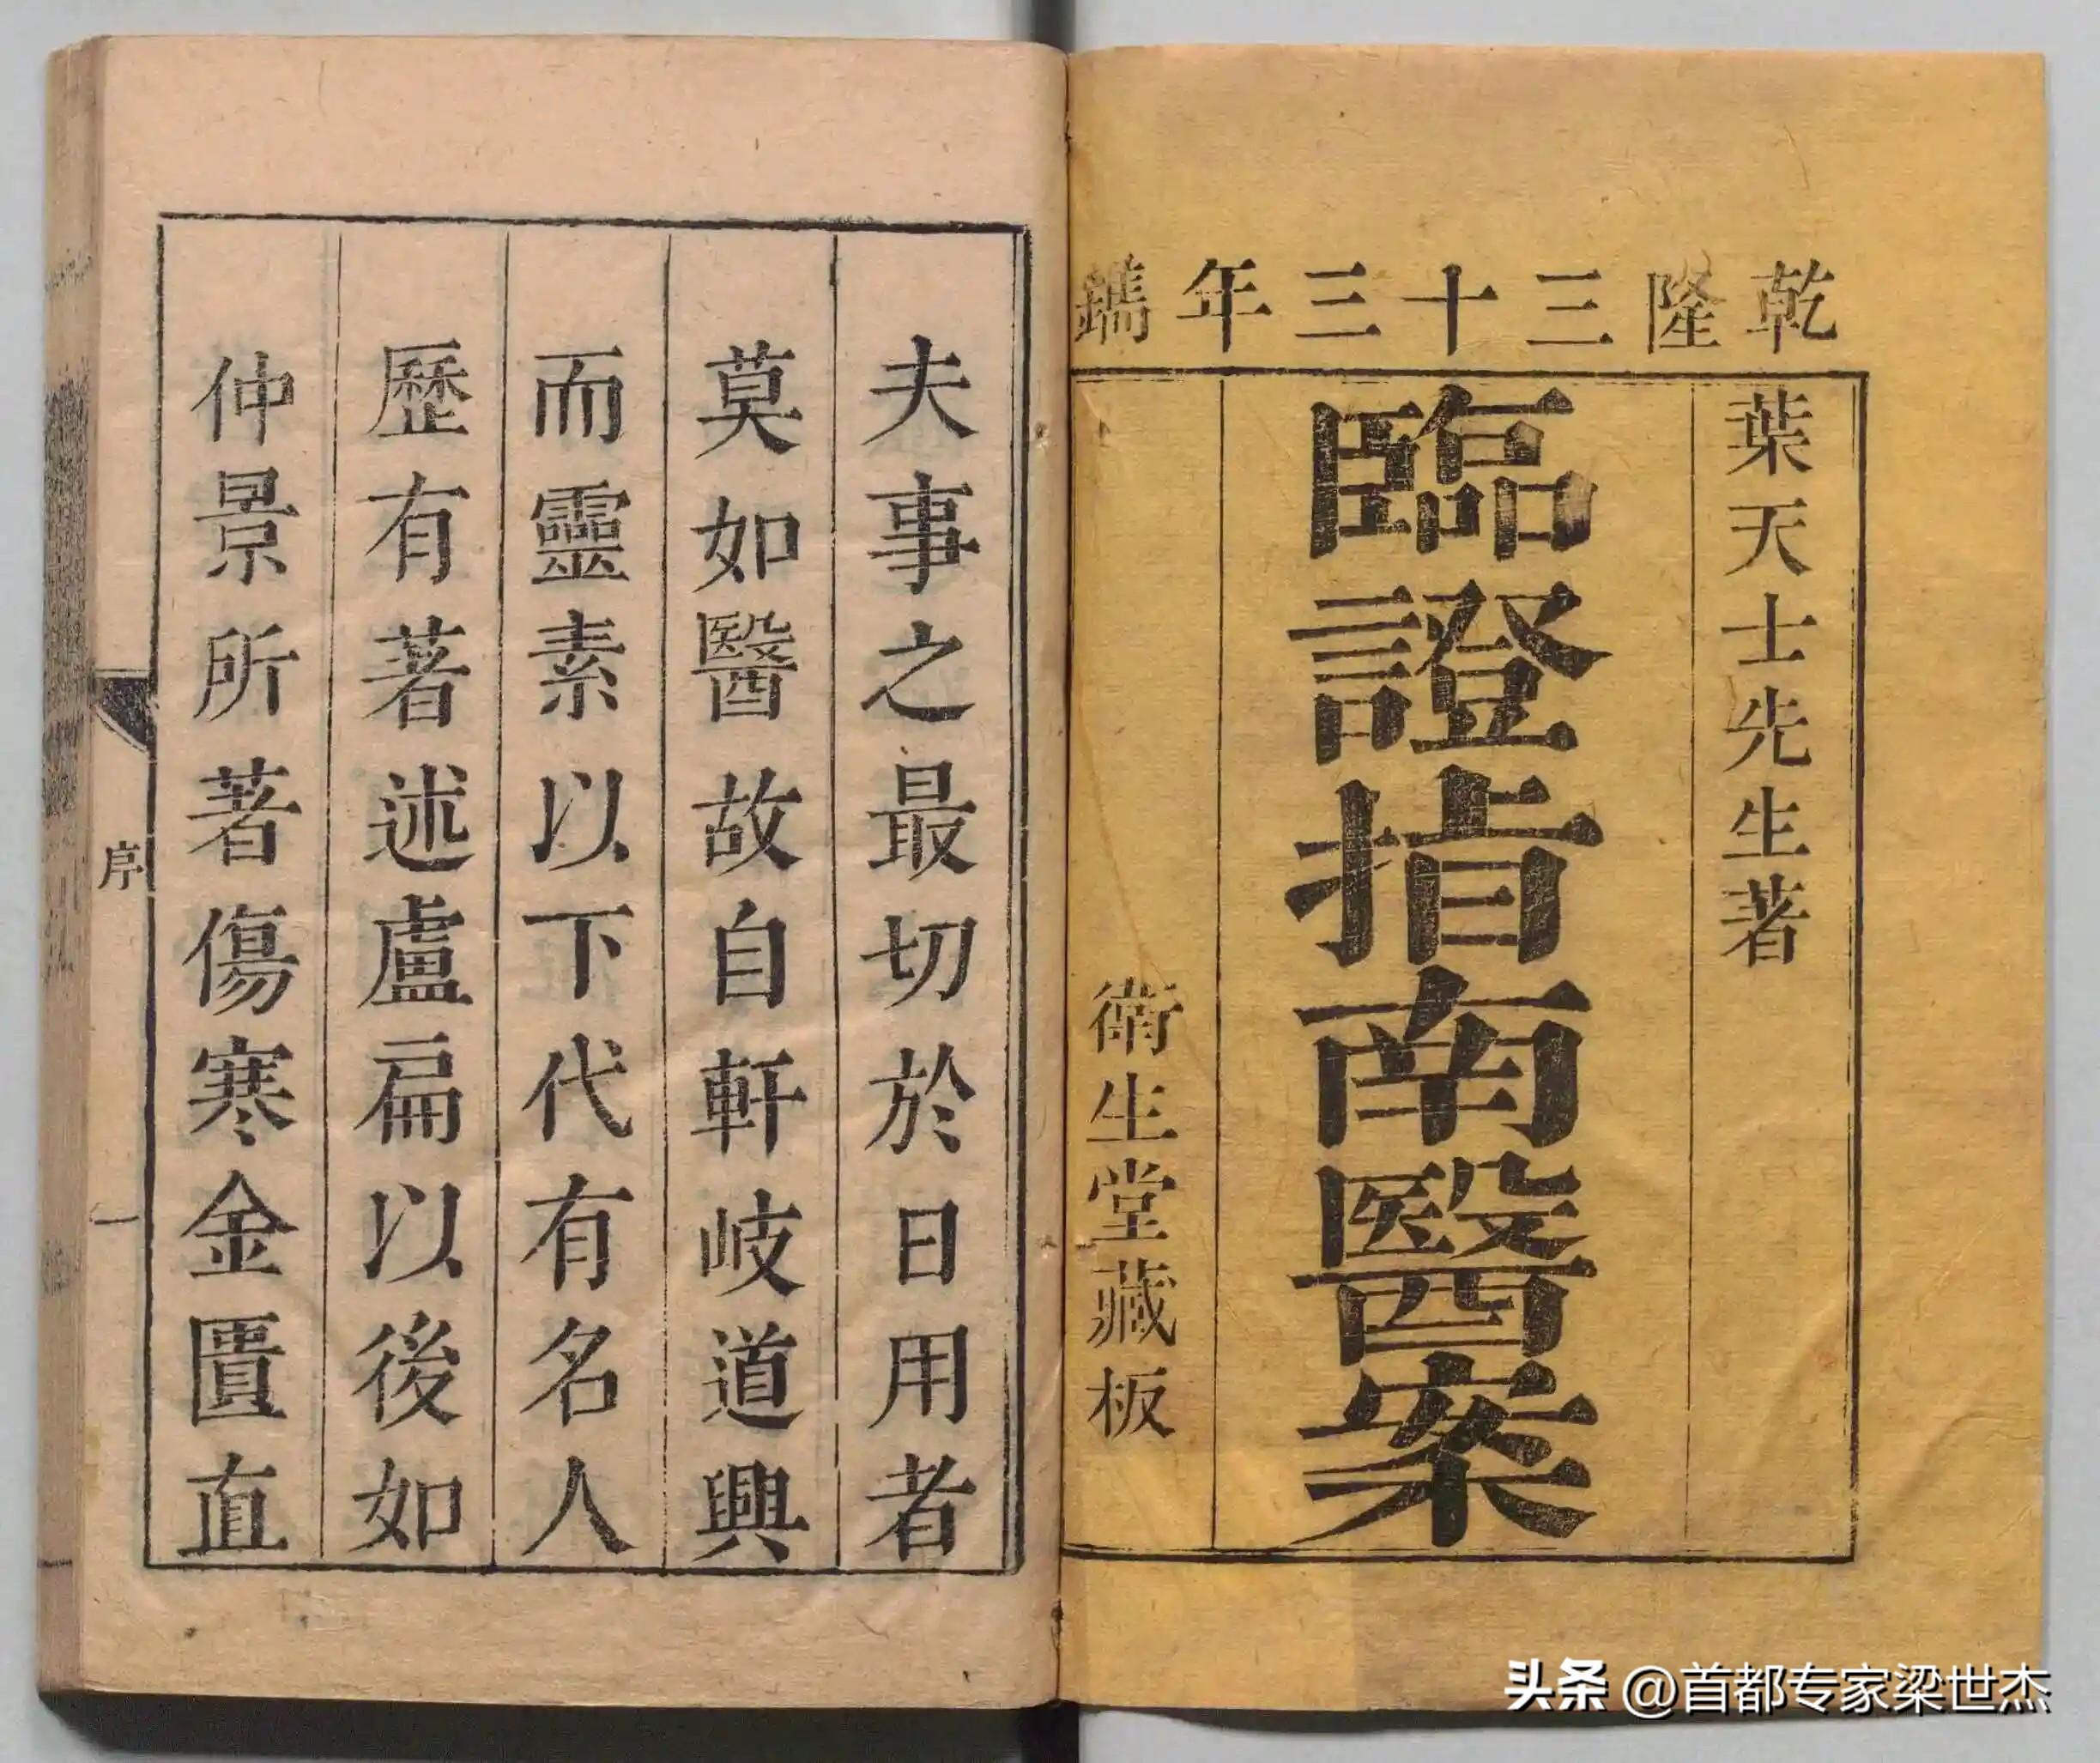 乾隆三十三年鐫
葉天士先生著
臨證指南醫案
衛生堂藏板
夫事之最切於日用者
莫如醫故自軒岐道興
而靈素以下代有名人
歷有著述盧扁以後如
仲景所著傷寒金匱直
序
一
头条 @首都专家梁世杰